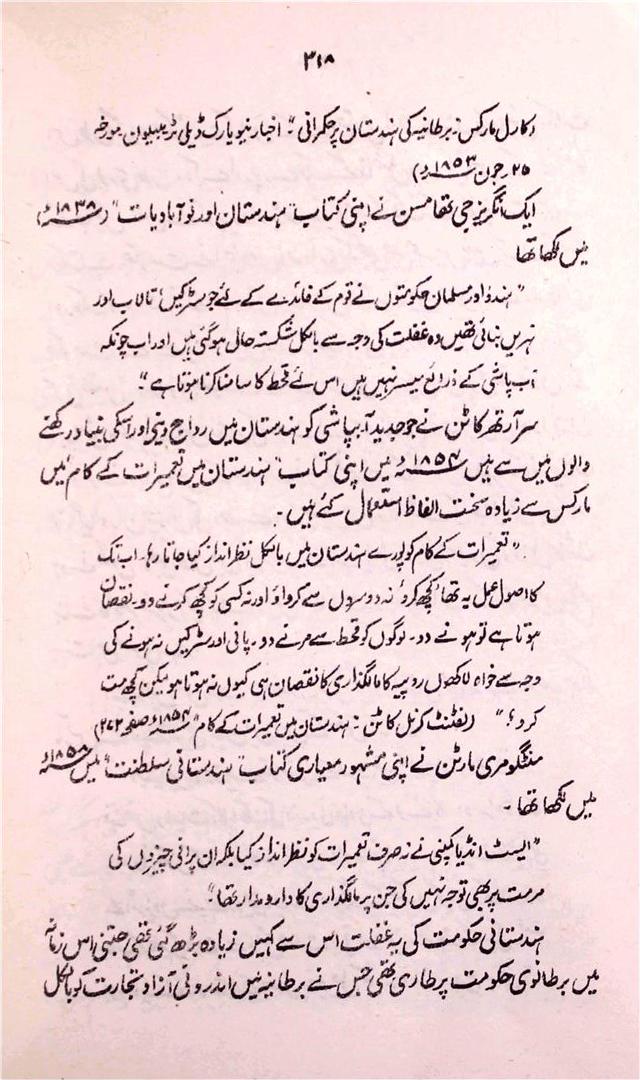 ۳۱۸
(کارل مارکس: برطانیہ کی ہندستان پر حکمرانی"۔ اخبار نیو یارک ڈیلی ٹریبیون مورخہ
۲۵۔ جون ۱۸۵۳ء)
ایک انگریز جی تھامسن نے اپنی کتاب "ہندستان اور نوآبادیات" (۱۸۳۸ء)
میں لکھا تھا
"ہندو اور مسلمان حکومتوں نے قوم کے فائدے کے لئے جو سڑکیں، تالاب اور
نہریں بنائی تھیں وہ غفلت کی وجہ سے بالکل شکستہ حال ہو گئی ہیں اور اب چونکہ
آب پاشی کے ذرائع میسر نہیں ہیں اس لئے قحط کا سامنا کرنا ہوتا ہے"۔
سر آرتھر کاٹن نے جو جدید آبپاشی کو ہندستان میں رواج دینے اور اسکی بنیاد رکھنے
والوں میں سے ہیں ۱۸۵۴ء میں اپنی کتاب "ہندستان میں تعمیرات کے کام" میں
مارکس سے زیادہ سخت الفاظ استعمال کئے ہیں۔
"تعمیرات کے کام کو پورے ہندستان میں بالکل نظر انداز کیا جاتا رہا۔ اب تک
کا اصول عمل یہ تھا "کچھ کرو نہ دوسروں سے کرواؤ اور نہ کسی کو کچھ کرنے دو۔ نقصان
ہوتا ہے تو ہونے دو۔ لوگوں کو قحط سے مرنے دو۔ پانی اور سڑکیں نہ ہونے کی
وجہ سے خواہ لاکھوں روپیہ کا مالگذاری کا نقصان ہی کیوں نہ ہوتا ہو لیکن کچھ مت
کرو؛" (لفٹنٹ کرنل کاٹن: ہندستان میں تعمیرات کے کام" ۱۸۵۴ء صفحہ ۲۷۲)
منٹگومری مارٹن نے اپنی مشہور معیاری کتاب "ہندستانی سلطنت" میں ۱۸۵۸ء
میں لکھا تھا۔
"ایسٹ انڈیا کمپنی نے نہ صرف تعمیرات کو نظر انداز کیا بلکہ ان پرانی چیزوں کی
مرمت پر بھی توجہ نہیں کی جن پر مالگذاری کا دارومدار تھا"
ہندستانی حکومت کی یہ غفلت اس سے کہیں زیادہ بڑھ گئی تھی جتنی اس زمانہ
میں برطانوی حکومت پر طاری تھی جس نے برطانیہ میں اندرونی آزاد تجارت کو بالکل